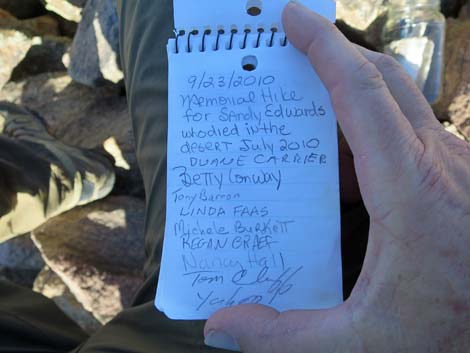 9/23/2010
Memorial Hike
for Sandy Edwards
who died in the
desert July 2010
DUANE CARRIER
Betty Conway
Tony Barron
LINDA FAAS
Michele Burkett
REGAN GRAEF
Nancy Hall
Tom